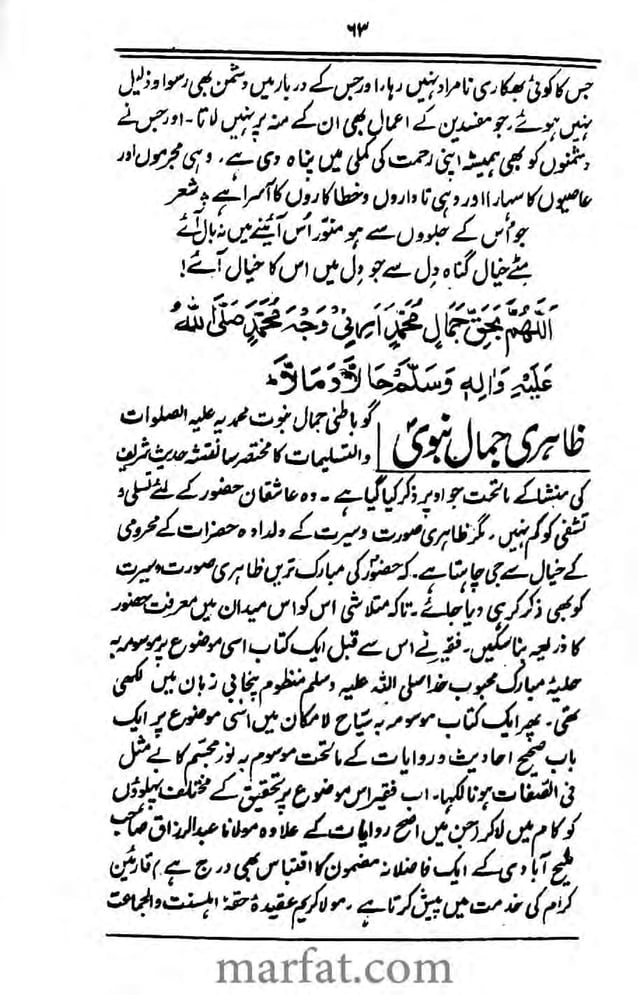 ۶۳
جس کا کوئی بھکاری نامراد نہیں رہا، اور جس کے دربار میں دشمن بھی رسوا و ذلیل
نہیں ہوئے، جو مفسدین کے اعمال بھی ان کے منہ پر نہیں لاتا۔ اور جس نے
دشمنوں کو بھی ہمیشہ اپنی رحمت کی کملی میں پناہ دی ہے، وہی مجرموں اور
عاصیوں کا سہارا اور وہی ناداروں و خطا کاروں کا آسرا ہے شعر
جو اُس کے جلووں سے ہو منور اُس آئینے میں نہ بال آئے
مٹے خیال گناہ دِل سے جو دِل میں اس کا خیال آئے!
اَللّٰهُمَّ بِحَقِّ جَمَالِ مُحَمَّدٍ اَرِنِیْ وَجْهَ مُحَمَّدٍ صَلَّی اللّٰهُ
عَلَیْهِ وَاٰلِهٖ وَسَلَّمَ حَالًا وَّ مَآلًا
ظاہری جمال نبوی
گو باطنی جمال نبوت محمدیہ علیہ الصلوات
والتسلیمات کا مختصر سا نقشہ حدیث شریف
کی منشا کے ماتحت جو اوپر ذکر کیا گیا ہے۔ وہ عاشقان حضور کے لئے تسلی و
تشفی کو کم نہیں، مگر ظاہری صورت و سیرت کے دلدادہ حضرات کے محرومی
کے خیال سے جی چاہتا ہے۔ کہ حضورؐ کی مبارک تریں ظاہری صورت و سیرت
کو بھی ذکر کر ہی دیا جائے۔ تاکہ متلاشی اس کو اس میدان میں معرفت حضور
کا ذریعہ بنا سکیں۔ فقیر نے اس سے قبل ایک کتاب اسی موضوع پر موسومہ بہ
حلیۂ مبارک محبوب خدا صلی اللہ علیہ وسلم منظوم پنجابی زبان میں لکھی
تھی۔ پھر ایک کتاب موسومہ بہ سیّاح لامکان میں اسی موضوع پر ایک
باب صحیح احادیث و روایات کے ماتحت موسوم بہ نور مجسّم کا بے مثل
فی الصّفات ہونا لکھا۔ اب فقیر اس موضوع پر تحقیق کے مختلف پہلوؤں
کو کام میں لا کر (جن میں اصح روایات کے علاوہ مولانا عبدالرزاق صاحب
ملیح آبادی کے ایک فاضلانہ مضمون کا اقتباس بھی درج ہے) قارئین
کرام کی خدمت میں پیش کرتا ہے، مولا کریم عقیدۂ حقہ اہلسنت والجماعت
marfat.com